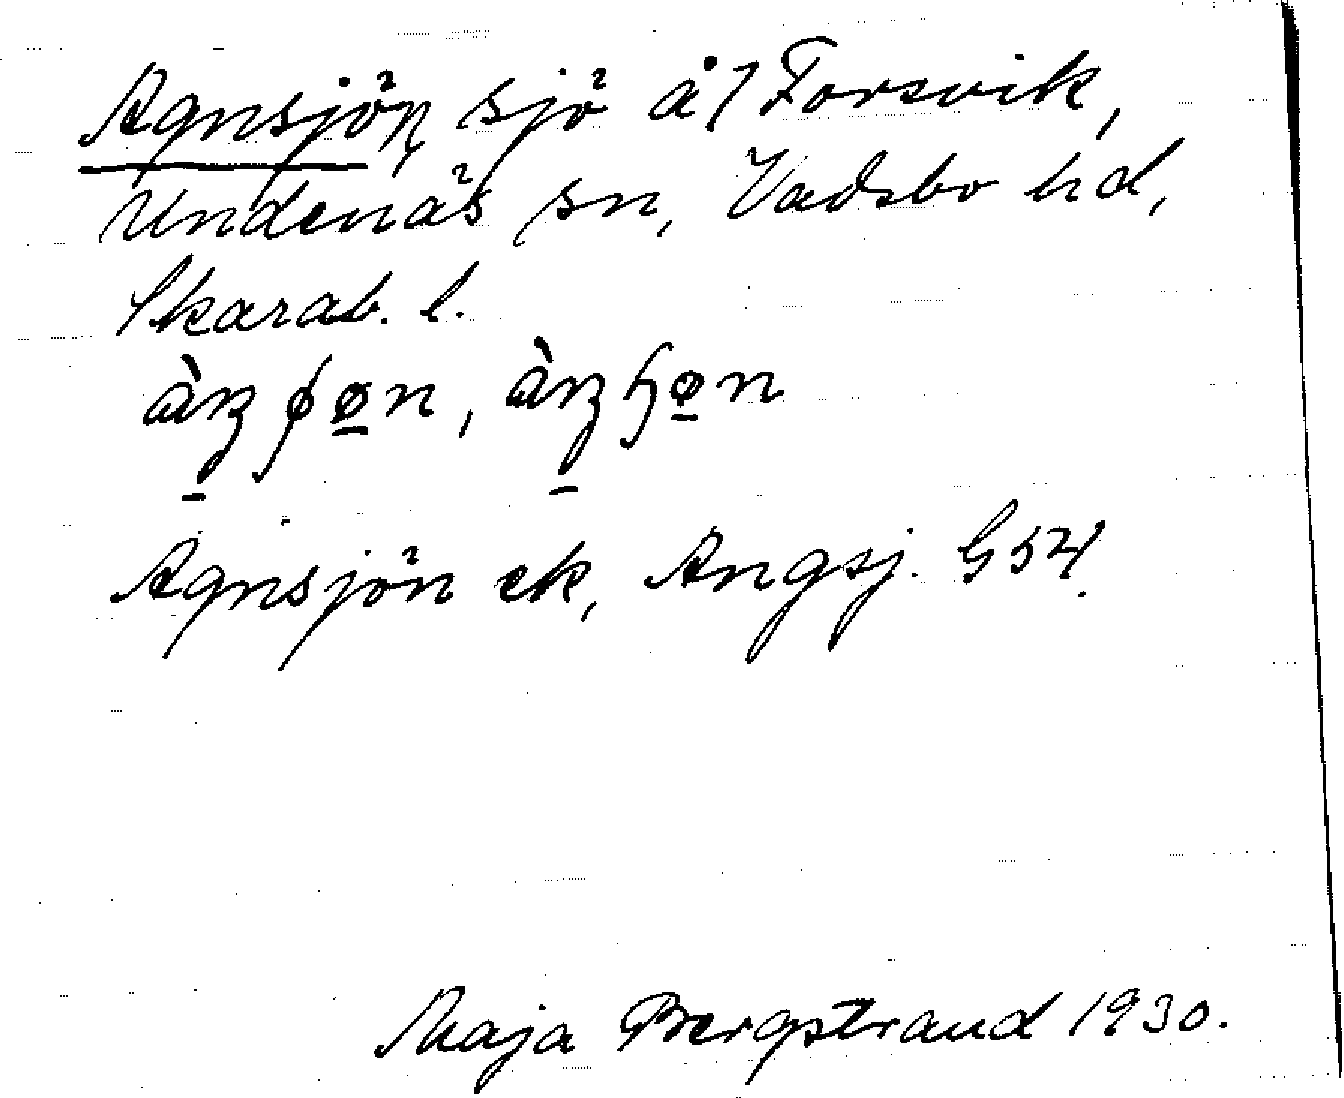 Agnsjön, sjö å 1 Forsvik,
Undenäs sn, Vadsbo hd,
Skarab. l.
Agnsjön ek, Angsj. G54.
Maja Bergstrand 1930.